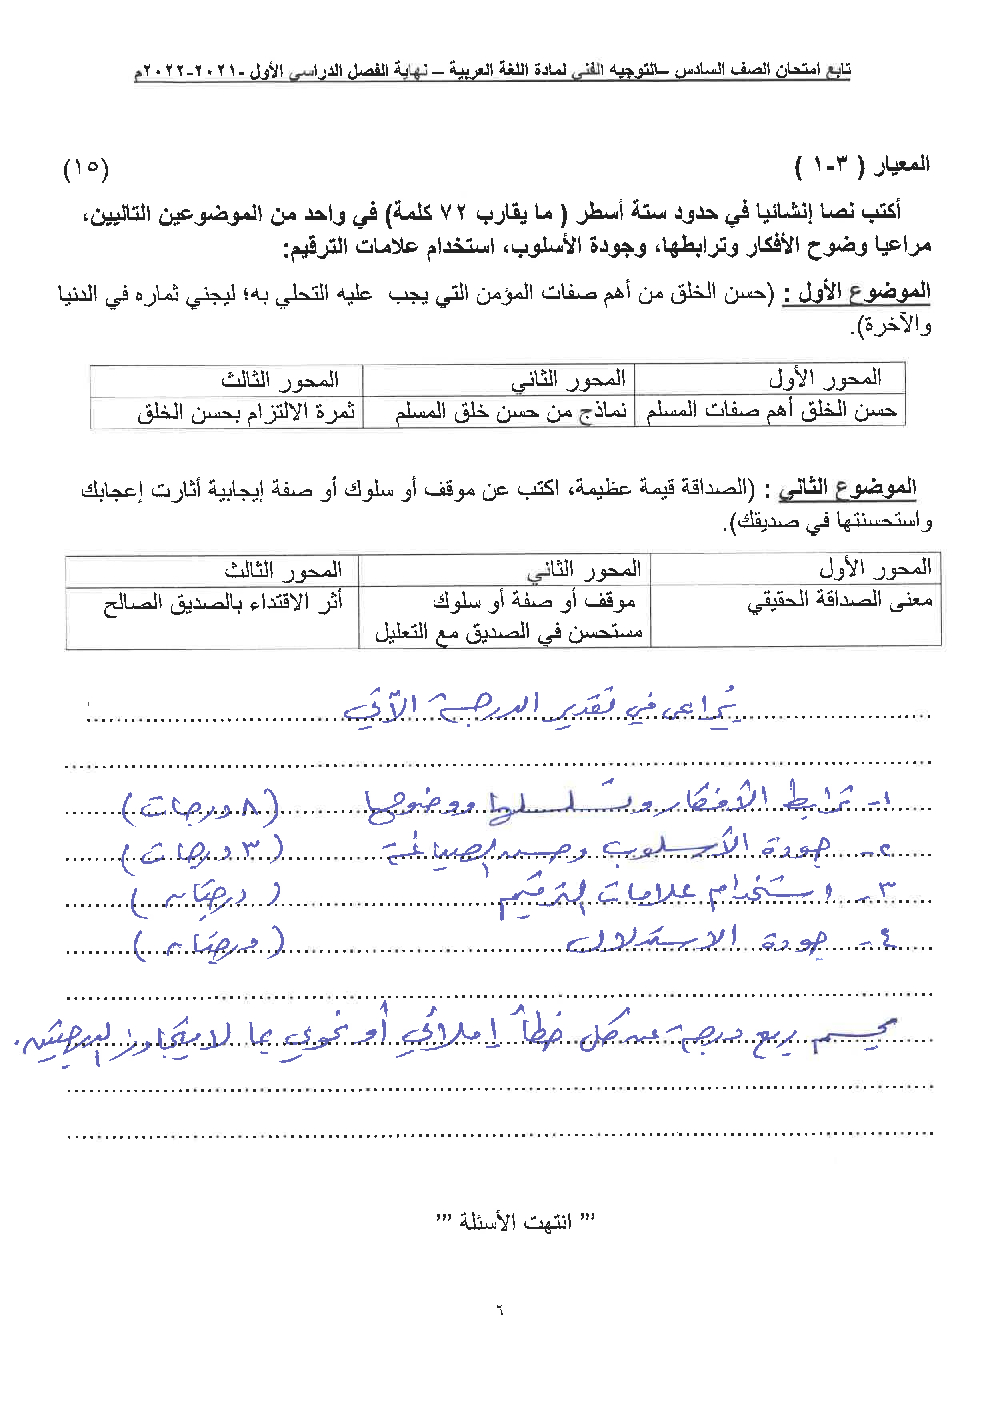 تابع امتحان الصف السادس –التوجيه الفني لمادة اللغة العربية – نهاية الفصل الدراسي الأول -٢٠٢١-٢٠٢٢م
المعيار ( ٣-١ ) (١٥)
أكتب نصا إنشائيا في حدود ستة أسطر ( ما يقارب ٧٢ كلمة) في واحد من الموضوعين التاليين،
مراعيا وضوح الأفكار وترابطها، وجودة الأسلوب، استخدام علامات الترقيم:
الموضوع الأول : (حسن الخلق من أهم صفات المؤمن التي يجب عليه التحلي به؛ ليجني ثماره في الدنيا
والآخرة).
المحور الأول المحور الثاني المحور الثالث
حسن الخلق أهم صفات المسلم نماذج من حسن خلق المسلم ثمرة الالتزام بحسن الخلق
الموضوع الثاني : (الصداقة قيمة عظيمة، اكتب عن موقف أو سلوك أو صفة إيجابية أثارت إعجابك
واستحسنتها في صديقك).
المحور الأول المحور الثاني المحور الثالث
معنى الصداقة الحقيقي موقف أو صفة أو سلوك أثر الاقتداء بالصديق الصالح
مستحسن في الصديق مع التعليل
يُراعى في تقدير الدرجة الآتي
١- ترابط الأفكار وتسلسلها ووضوحها (٨ درجات)
٢- جودة الأسلوب وحسن الصياغة (٣ درجات)
٣- استخدام علامات الترقيم (درجتان)
٤- جودة الاستدلال (درجتان)
يحسم ربع درجة عن كل خطأ إملائي أو نحوي بما لا يتجاوز الدرجتين.
"' انتهت الأسئلة "'
٦